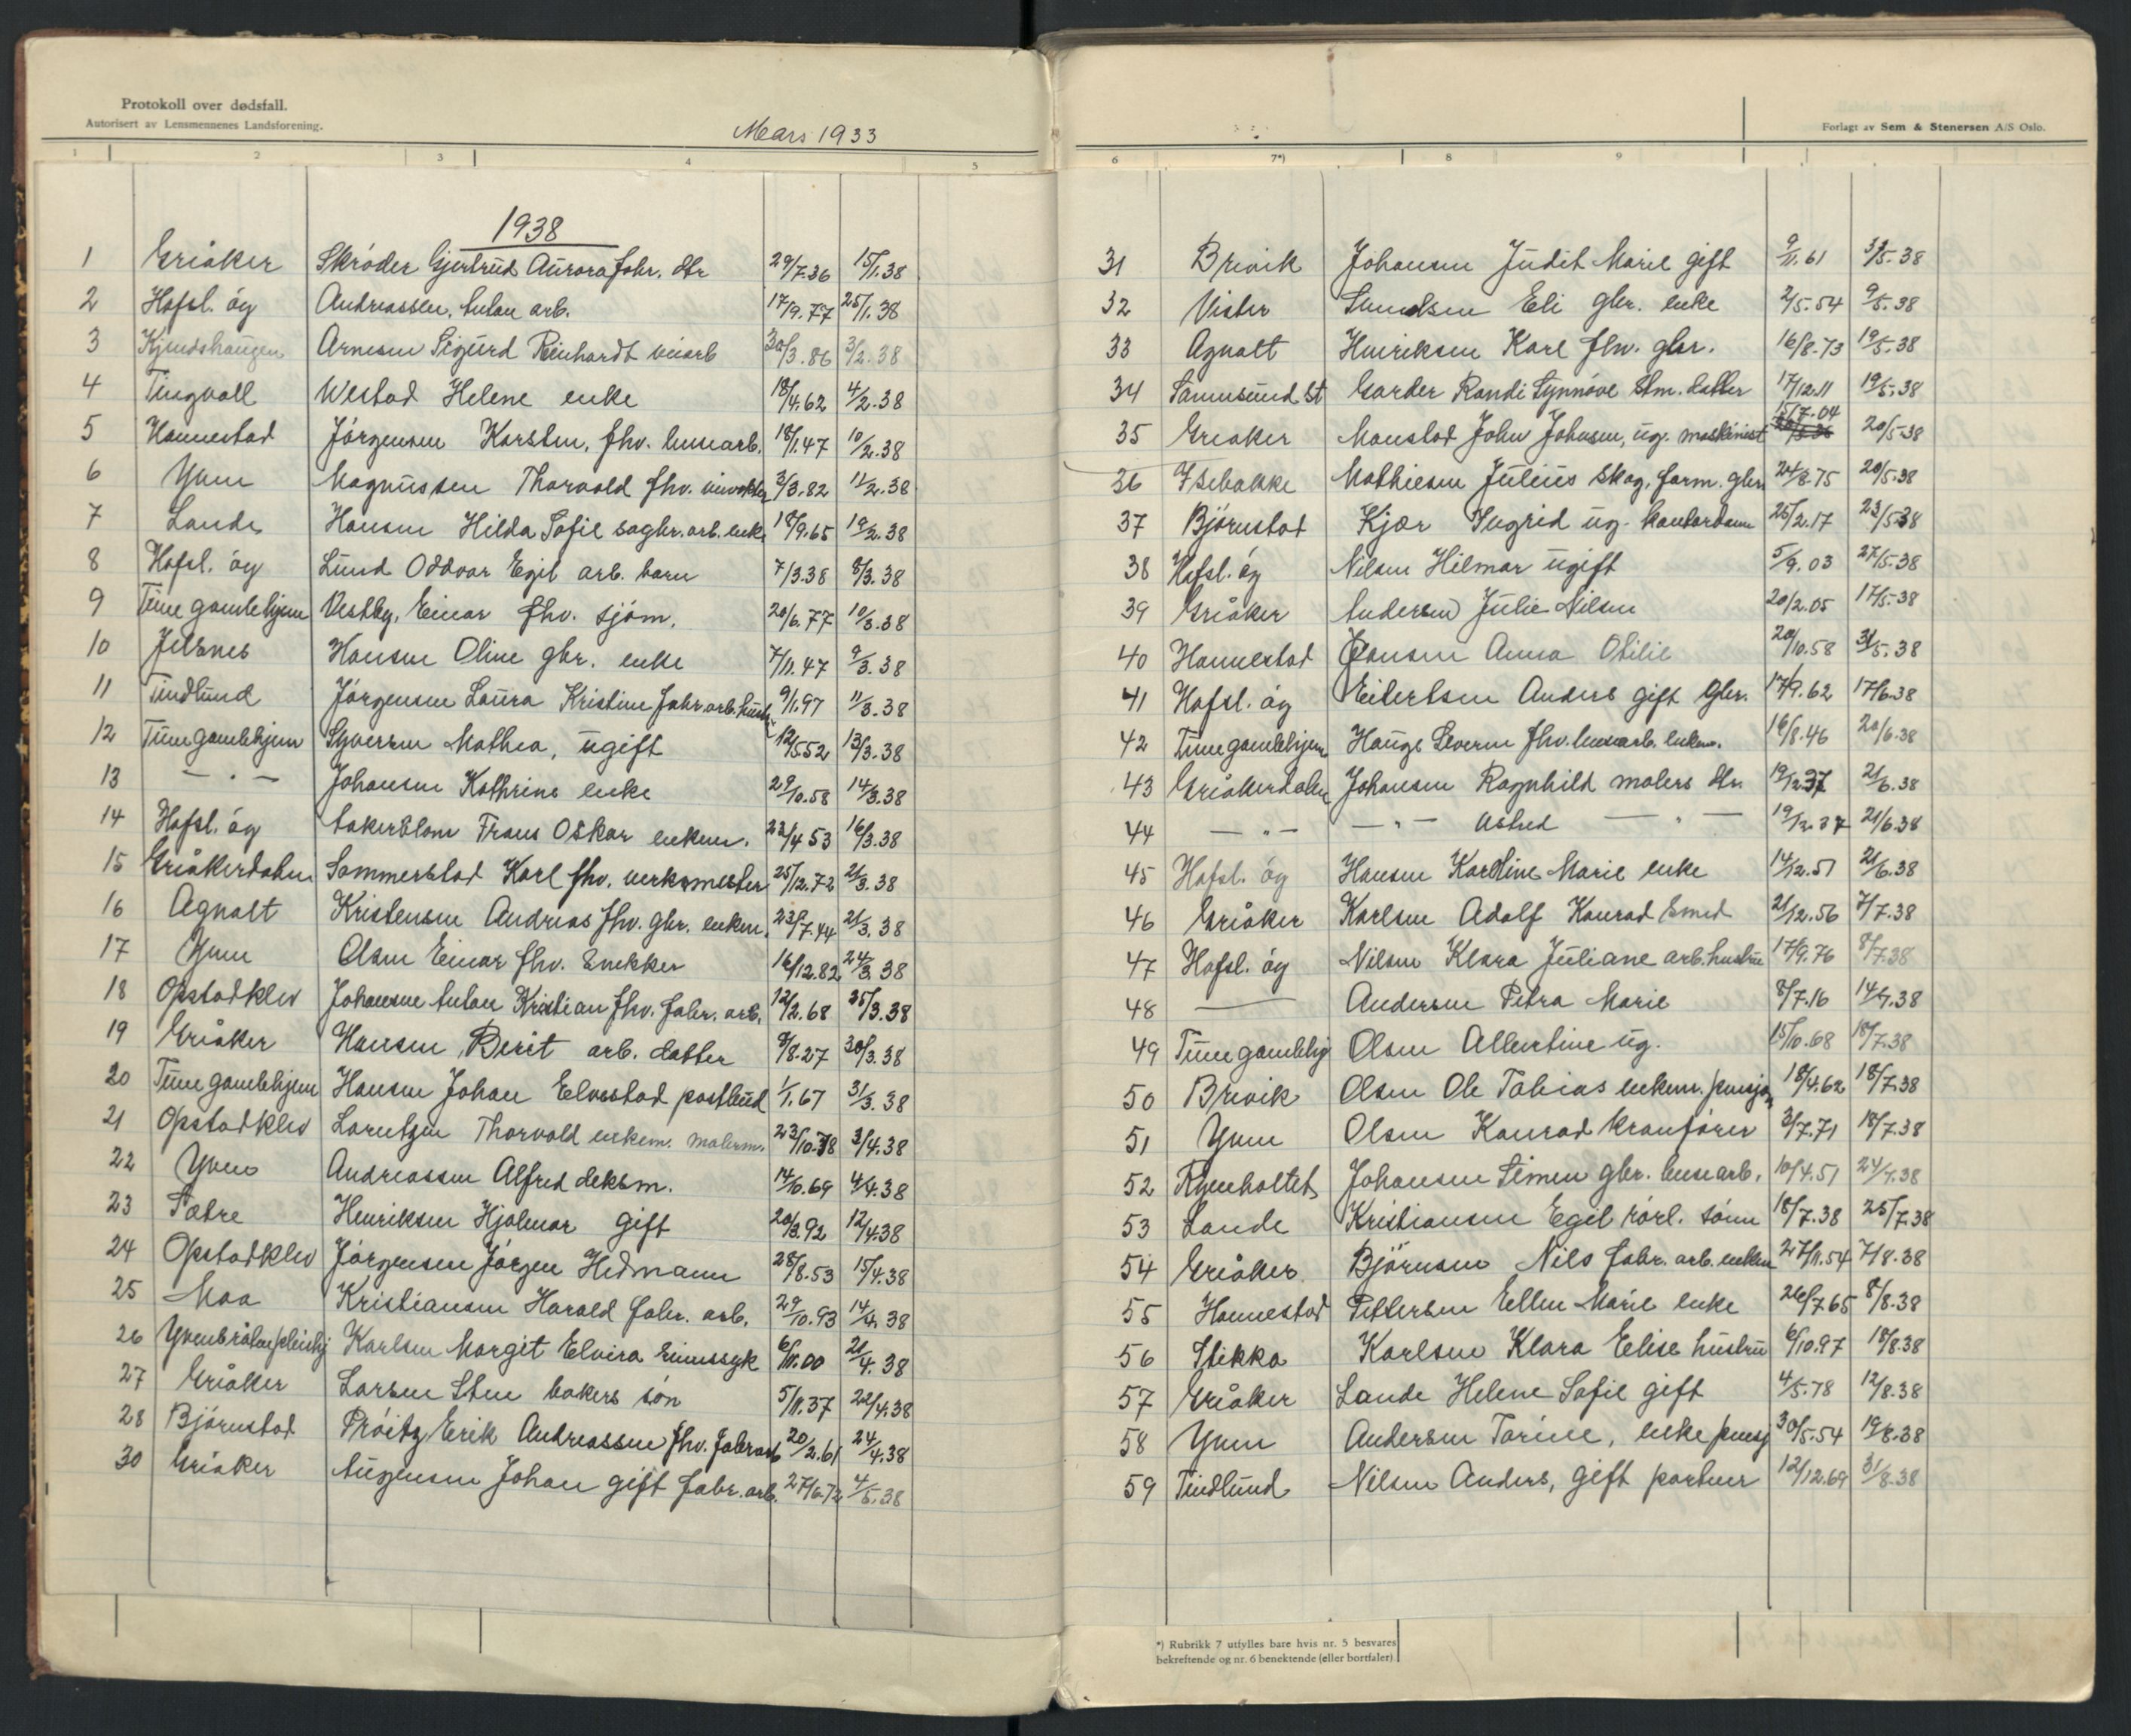 Protokoll over dødsfall.
Autorisert av Lensmennenes Landsforening.
Mars 1933
1 2 3 4 5
1938
1 Greåker Skröder Gjertrud Aurora fabr. dtr 29/7.36 15/1.38
2 Hafsl. óg Andreassen, Anton arb. 17/9.77 25/1.38
3 Kjendshaugen Arnesen Sigurd Reinhardt veiarb 30/3.86 3/2.38
4 Tingvoll Westad Helene enke 18/4.62 4/2.38
5 Hannestad Jörgensen Karsten, fhv. brusarb. 18/1.47 10/2.38
6 Yven Magnussen Thorvald fhv. 3/3.82 11/2.38
7 Lande Hansen Hilda Sofie sagbr. arb. enke 18/9.65 19/2.38
8 Hafsl. óg Lund Oddvar Egil arb. barn 7/3.38 8/3.38
9 Tune gamlehjem Vestby, Einar fhv. sjöm. 20/6.77 10/3.38
10 Jelsnes Hansen Oline gbr. enke 7/11.47 9/3.38
11 Tindlund Jörgensen Laura Kristine fabr. arb. hustr. 9/1.97 11/3.38
12 Tune gamlehjem Syversen Mathea, ugift 12/5.52 13/3.38
13 — „ — Johansen Kathrine enke 29/10.58 14/3.38
14 Hafsl. óg Aakerblom Frans Oskar enkem. 23/4 53 16/3.38
15 Greåkerdalen Sommerstad Karl fhv. verksmester 25/12.72 21/3.38
16 Agnalt Kristensen Andreas fhv. gbr. enkem. 23/7.44 21/3.38
17 Yven Olsen Einar fhv. Snekker 16/12.82 24/3 38
18 Opstadklev Johansen Anton Kristian fhv. fabr. arb. 12/2.68 25/3.38
19 Greåker Hansen Berit arb. datter 9/8.27 30/3.38
20 Tune gamlehjem Hansen Johan Elvestad postbud 1/1.67 31/3.38
21 Opstadklev Lorentzen Thorvald enkem. malerm. 23/10.78 3/4.38
22 Yven Andreassen Alfred deksm. 14/10.69 4/4.38
23 Sætre Henriksen Hjalmar gift 20/3.92 12/4.38
24 Opstadklev Jörgensen Jörgen Hedmann 28/8.53 15/4.38
25 Moa Kristiansen Harald fabr. arb. 29/10.93 14/4.38
26 Karlsen Margit Elvira sinnssyk 6/11.00 21/4.38
27 Greåker Larsen Sten bakers sön 5/11.37 22/4.38
28 Björnstad Pröitz Erik Andreassen fhv. fabrarb 20/2.61 24/4.38
30 Greåker Augensen Johan gift fabr. arb. 27/6.72 4/5.38
Forlagt av Sem & Stenersen A/S Oslo.
6 7*) 8 9
31 Brevik Johansen Judit Marie gift 9/11.61 3/5.38
32 Vister Eli gbr. enke 2/5.54 9/5.38
33 Agnalt Henriksen Karl fhv. gbr. 16/8.73 19/5.38
34 Sannesund St Garder Randi Synnöve Stm. datter 17/12.11 19/5.38
35 Greåker Monstad John Johnsen, ug. maskinist 15/7.04 20/5.38
36 Isebakke Mathiesen Julius Skog, farm. gbr. 24/8.75 20/5.38
37 Björnstad Kjær Ingrid ug. kontordame 25/2.17 23/5.38
38 Hafsl. óg Nilsen Hilmar ugift 5/9.03 27/5.38
39 Greåker Andersen Julie Nilsen 20/2.05 17/5.38
40 Hannestad Hansen Anna Otilie 20/10.58 31/5.38
41 Hafsl. óg Eilertsen Anders gift Gbr. 17/9.62 17/6.38
42 Tune gamlehjem Hauge Severin fhv. brusarb. enkem. 16/8.46 20/6.38
43 Greåkerdalen Johansen Ragnhild malers dtr. 19/12.37 21/6.38
44 — „ — — „ — Astrid — „ — 19/12.37 21/6.38
45 Hafsl. óg Hansen Karoline Marie enke 14/12.51 21/6.38
46 Greåker Karlsen Adolf Konrad Smed 21/12.56 7/7.38
47 Hafsl. óg Nilsen Klara Juliane arb. hustru 17/9.76 8/7.38
48 — Andersen Petra Marie 8/7.16 14/7.38
49 Tune gamlehj Olsen Albertine ug. 15/10.68 18/7.38
50 Brevik Olsen Ole Tobias enkem. pensjon 18/4.62 18/7.38
51 Yven Olsen Konrad kranförer 3/7.71 18/7.38
52 Johansen Simen gbr. brusarb. 10/4.51 24/7.38
53 Lande Kristiansen Egil rörl. sönn 18/7.38 25/7.38
54 Greåker Björnsen Nils fabr. arb. enkem 27/11.54 7/8.38
55 Hannestad Pettersen Ellen Marie enke 26/7.65 8/8.38
56 Stikka Karlsen Klara Elise hustru 6/10.97 18/8.38
57 Greåker Lande Helene Sofie gift 4/5.78 12/8.38
58 Yven Andersen Torine, enke pensj 30/5.54 19/8.38
59 Tindlund Nilsen Anders, gift portner 12/12.69 31/8.38
*) Rubrikk 7 utfylles bare hvis nr. 5 besvares
bekreftende og nr. 6 benektende (eller bortfaler)